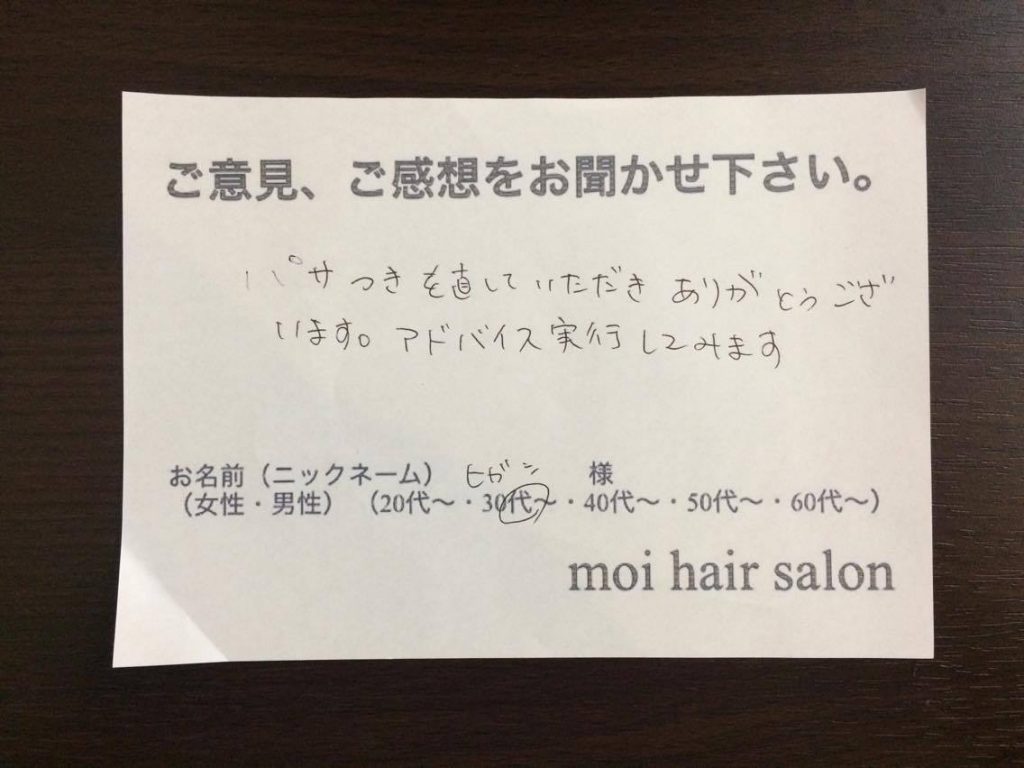 ご意見、ご感想をお聞かせ下さい。
パサつきを直していただきありがとうござ
います。アドバイス実行してみます
お名前（ニックネーム） ヒガシ 様
（女性・男性）（20代〜・30代〜・40代〜・50代〜・60代〜）
moi hair salon